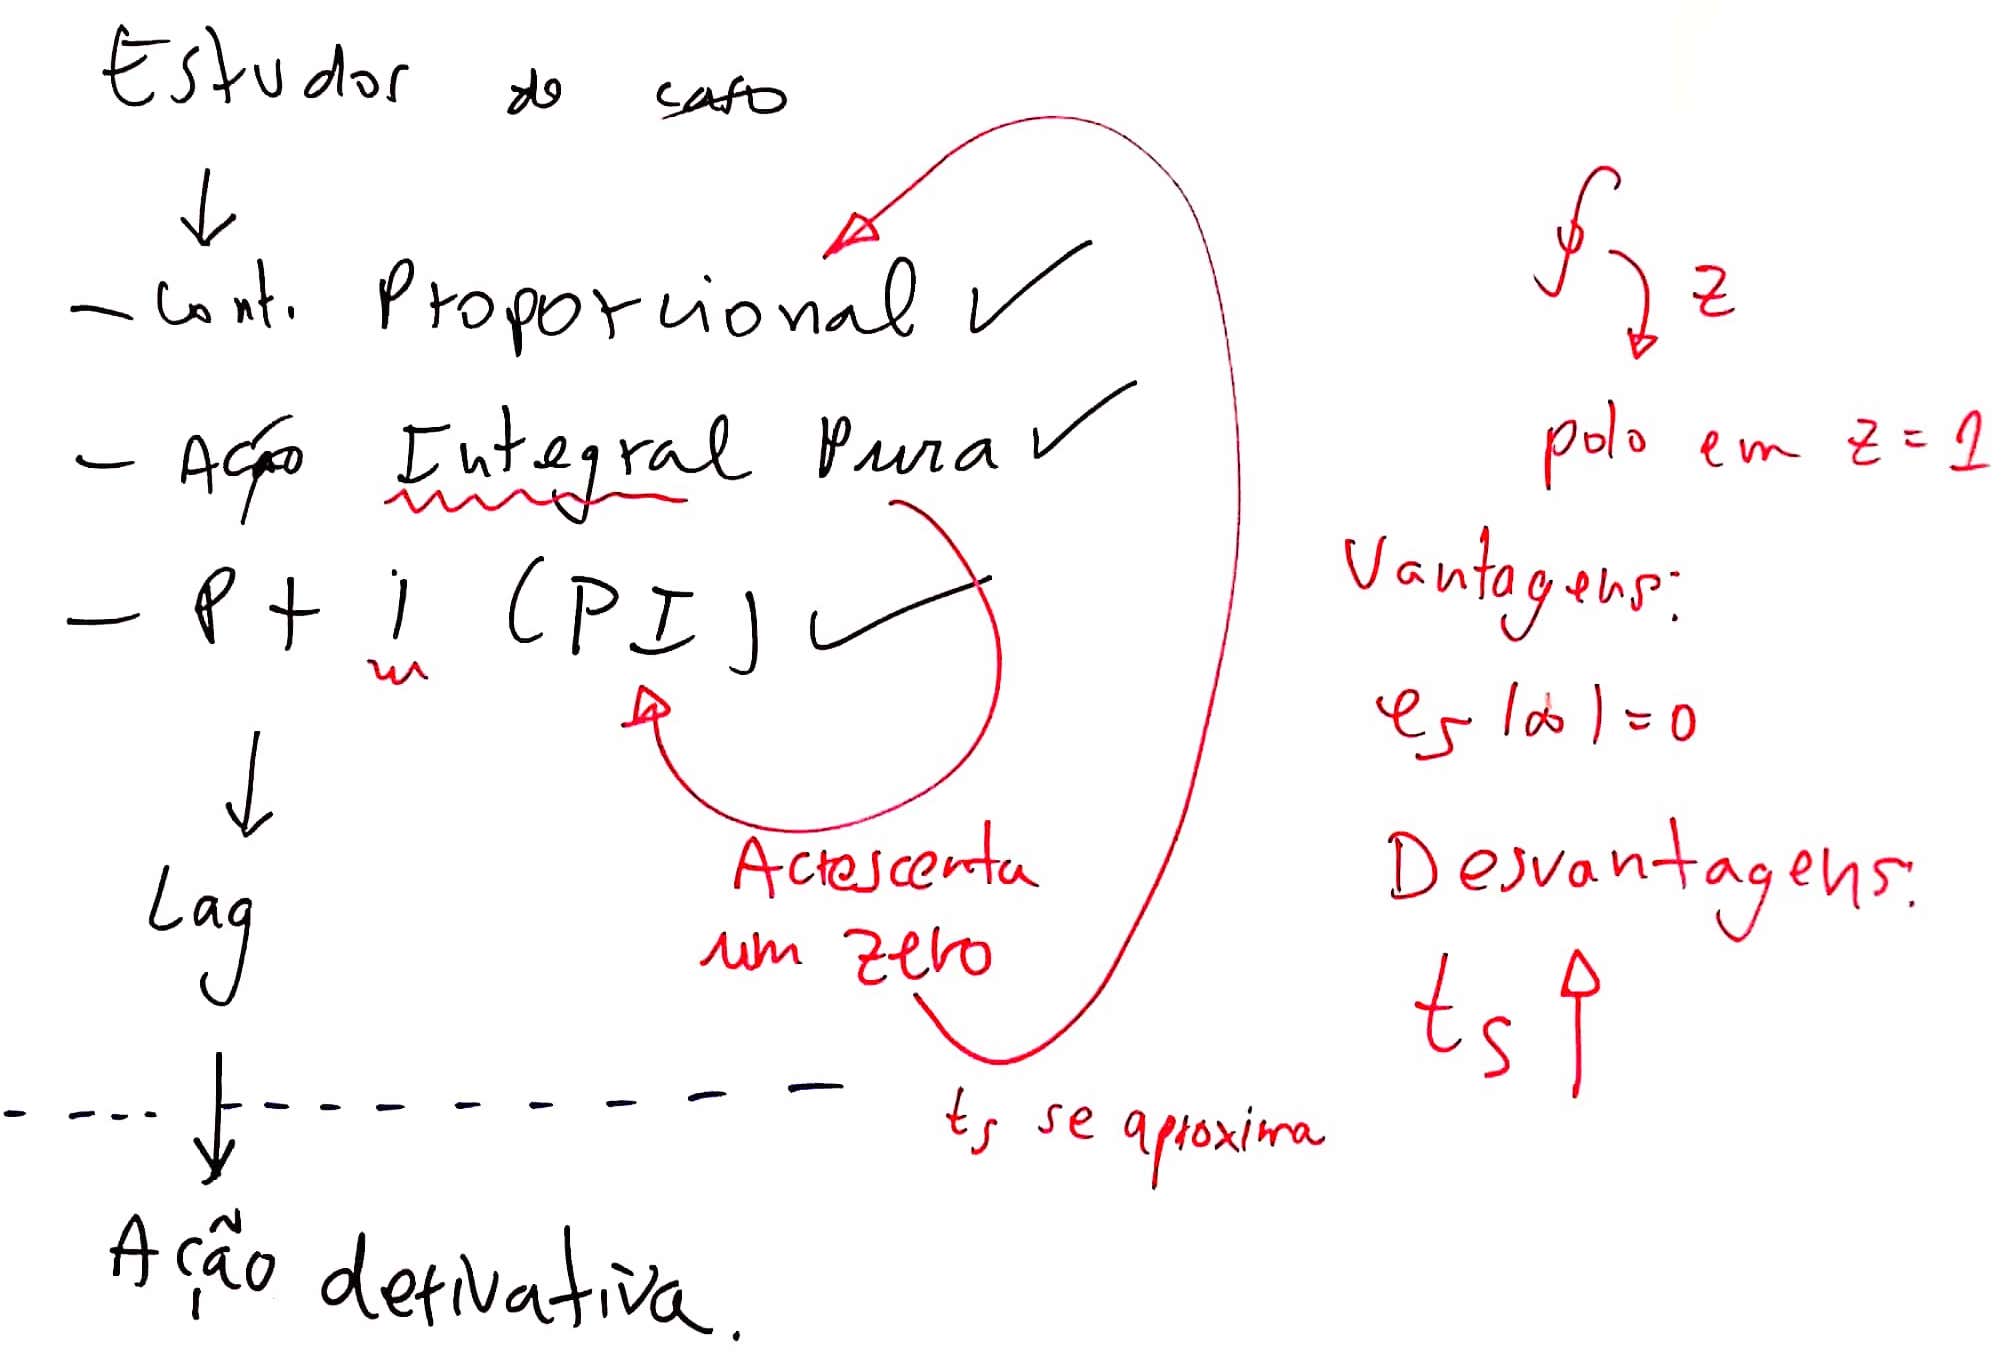 Estudos de caso
↓
- Cont. Proporcional ✓
- Ação Integral Pura ✓
- P + i (PI) ✓
↓
Lag
↓
Ação derivativa.
Acrescenta
um zero
ts se aproxima
∮
z
polo em z = 1
Vantagens:
es(∞) = 0
Desvantagens:
ts ↑